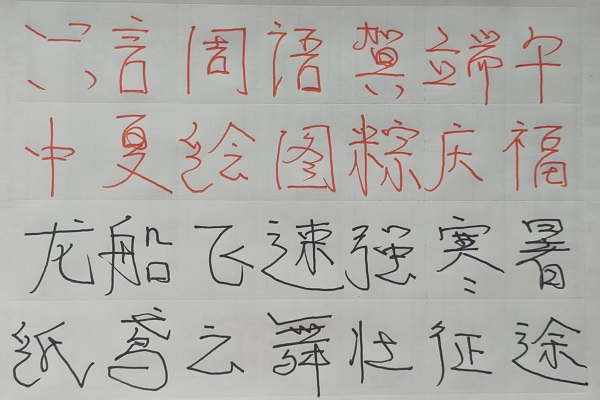 六言周语賀端午
中夏绘图粽庆福
龙船飞速强寒暑
纸鸢云舞壮征途